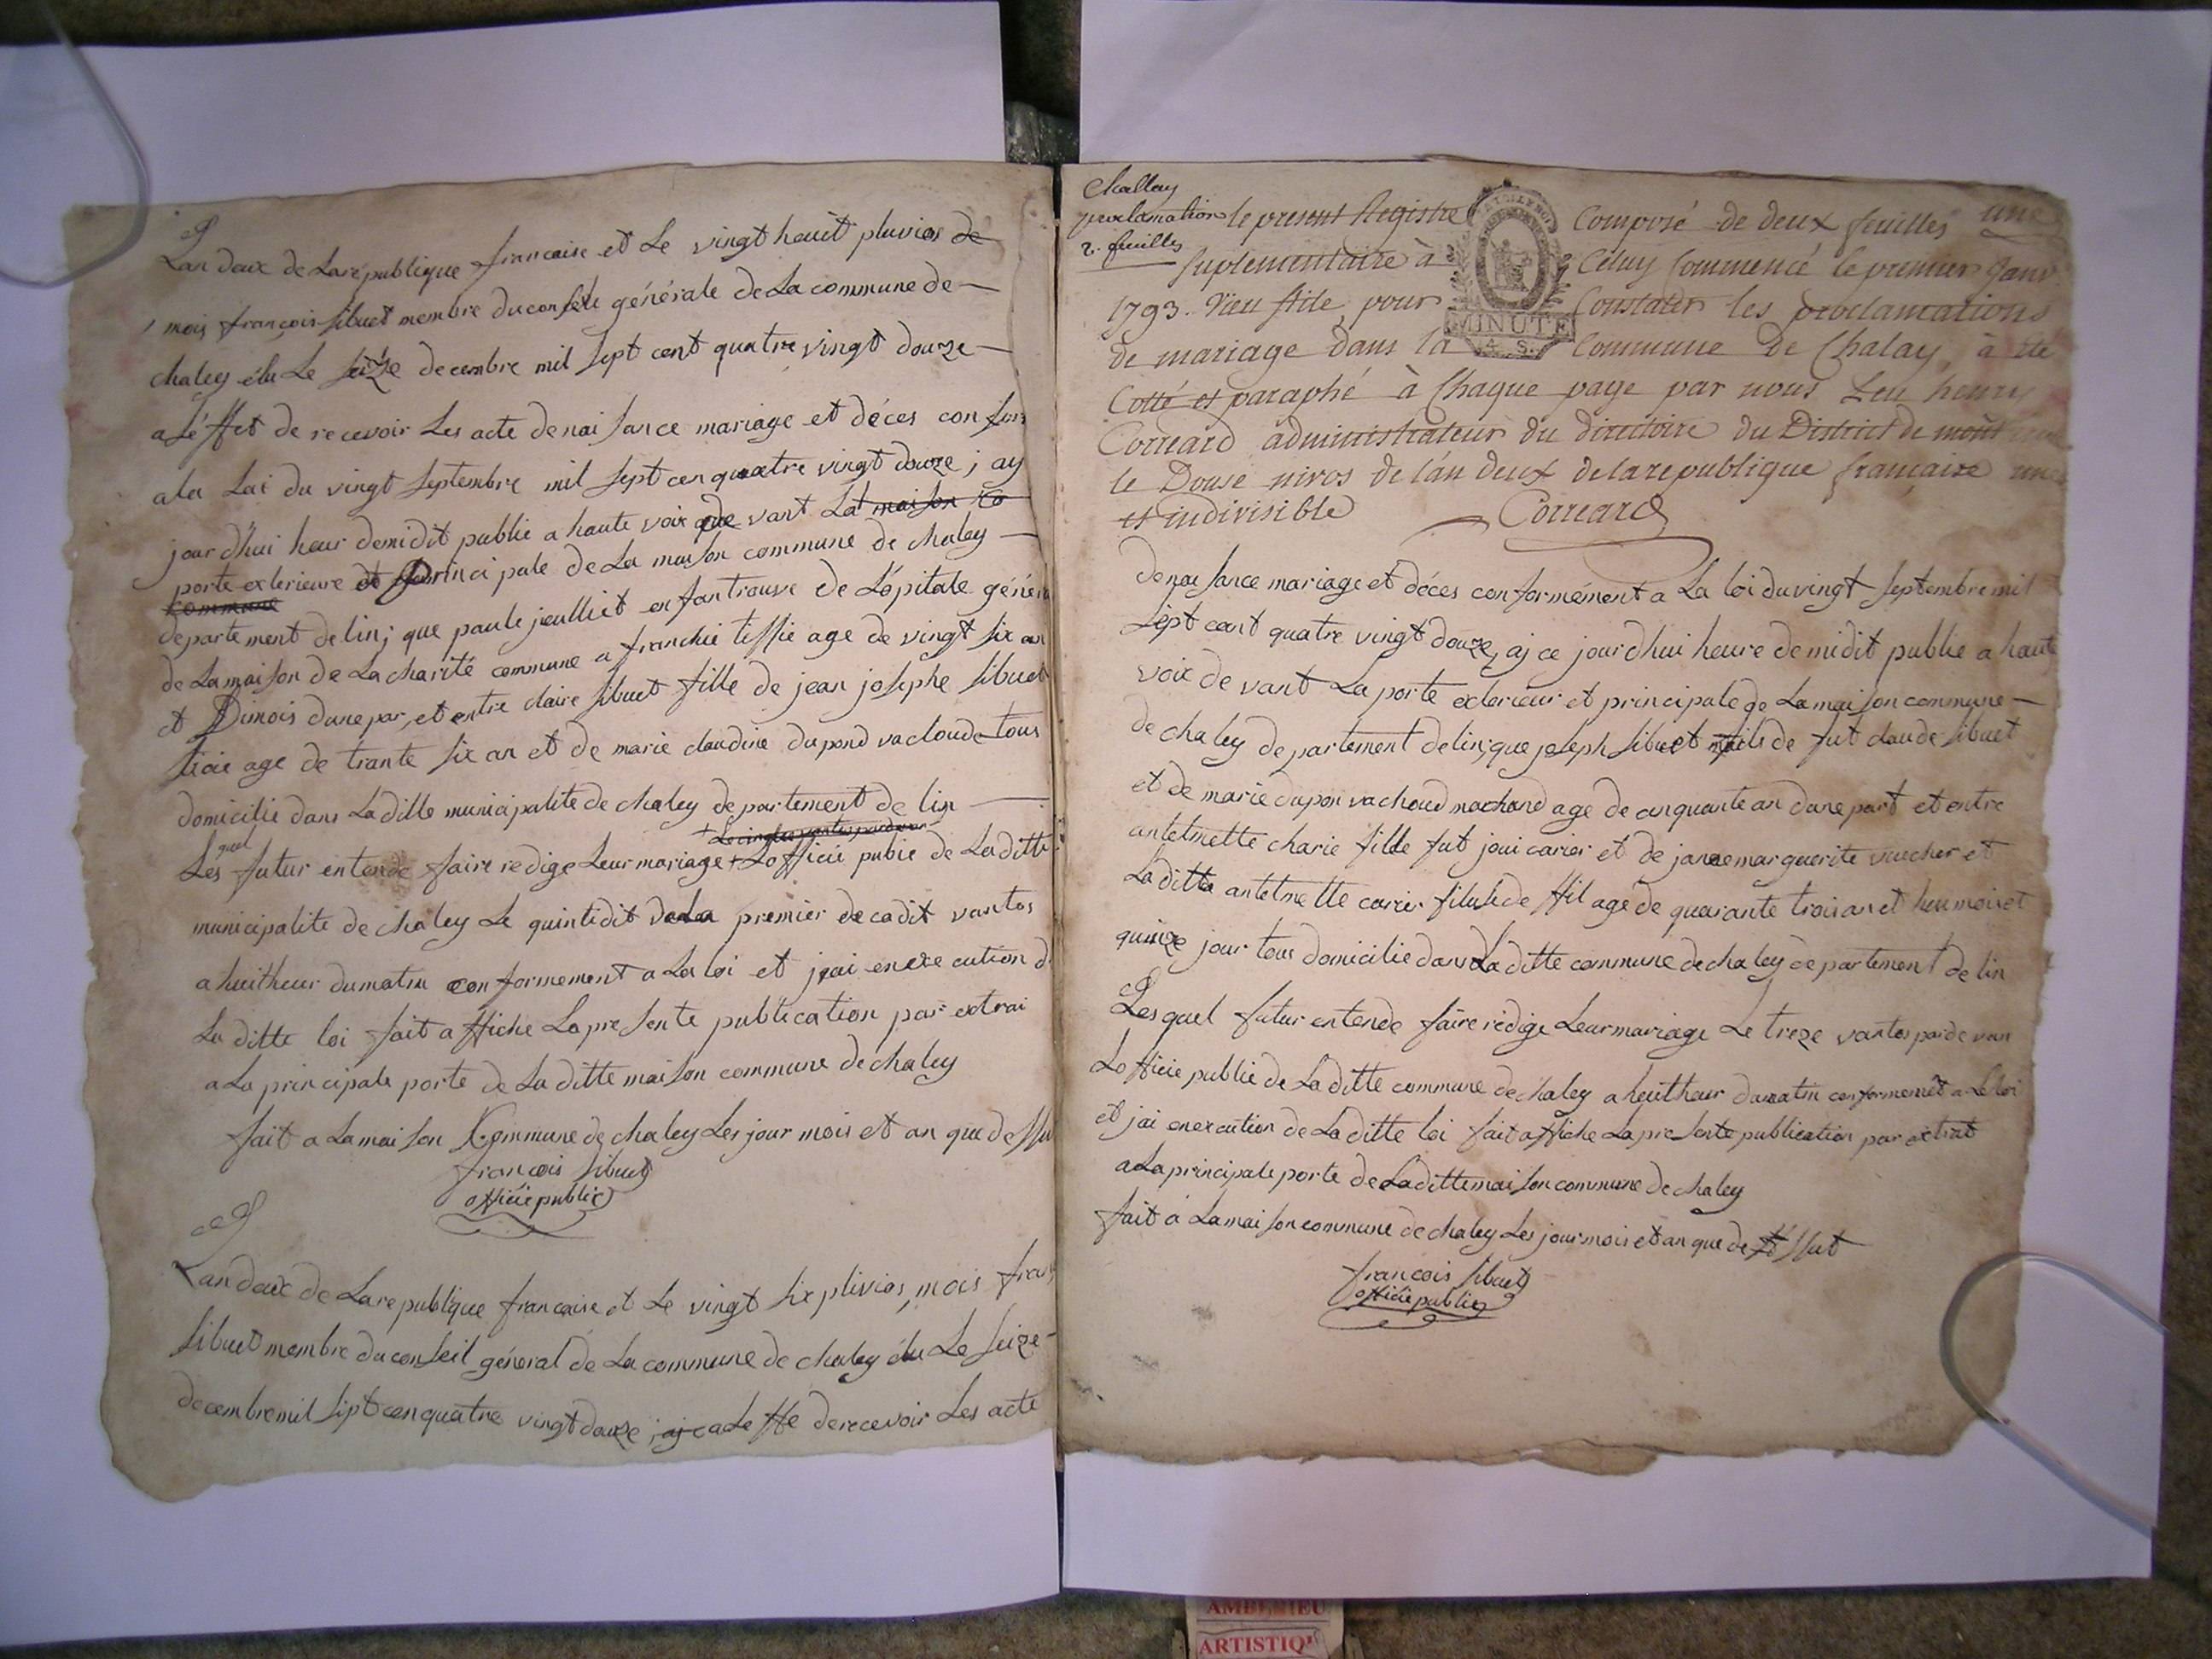 Lan deux de Larepublique francaise et Le vingt heuit pluvios de
mois françois sibuet membre du conseile générale de La commune de
chaley élu Le seize decembre mil sept cent quatre vingt douze
a léffet de recevoir Les acte de naissance mariage et déces con form
a la Loi du vingt septembre mil sept cen quatre vingt douze j ay
jour d'hui heur demidit publie a haute voix de vant La maison co
porte exterieure et principale de La maison commune de chaley
commune
departement de lin j que paule jeulliet enfan trouve de Lópitale généra
de La maison de La charité commune a franchie tissie age de vingt six an
et Dimois dune par, et entre claire sibuet fille de jean josephe sibuet
age de trante six an et de marie claudine dupond vacloude tous
domicilie dans La ditte municipalite de chaley departement de lin
Les quel futur entende faire redige Leur mariage + Lofficié pubie de La ditte
Le cinque vantos pardevan
municipalite de chaley Le quintidit dela premier decadit vantos
a huitheur du matin conformement a La loi et jai en exe cution d
La ditte loi fait affiche La presente publication par extrai
a La principale porte de La ditte maison commune de chaley
fait a La maison Commune de chaley Les jour mois et an que dessu
francois sibuet
officié public
Lan deux de Larepublique francaise et Le vingt six plivios, mois fran
sibuet membre du conseil général de La commune de chaley élu Le seize
decembre mil sipt cen quatre vingt douze j aj ca Leffé de recevoir Les acte
Challey
proclamations
2. feuilles
le present Registre Composé de deux feuilles une
suplementaire à Céluy Commencé le premier Janv
1793. Vieu stile, pour Constater les proclamations
MINUTE
4 S.
de mariage dans la Commune de Chalay, à été
Cotté et paraphé à Chaque page par nous Leu henry
Correard administrateur du directoire du District de mont
le Douse nivos de l'án deux de la republique française une
et indivisible Correard
de naissance mariage et déces conformément a La loi du vingt septembre mil
sept cent quatre vingt douze, aj ce jour d'hui heure de midit publie a haute
voix de vant La porte exterieur et principale de La maison commune
de chaley departement de lin; que joseph sibuet fils de fut claude sibuet
et de marie dupon vachoud marchand age de cinquante an dune part et entre
antelmette charie fille fut joui carier et de janne marguerite vucher et
La ditte antelmette carier age de quarante trois an et heu mois et
quinze jour tous domicilie dans La ditte commune de chaley departement de lin
Les quel futur entende faire rédige Leur mariage Le treze vantos par de van
Lofficie publie de La ditte commune de chaley a heuit heur du matin conformemét a La loi
et jai en excution de La ditte loi fait affiche La presente publication par extrat
a La principale porte de La ditte maison commune de chaley
fait à La maison commune de chaley Les jour mois et an que de ssut
francois sibuet
officié public
AMBERIEU
ARTISTIQ